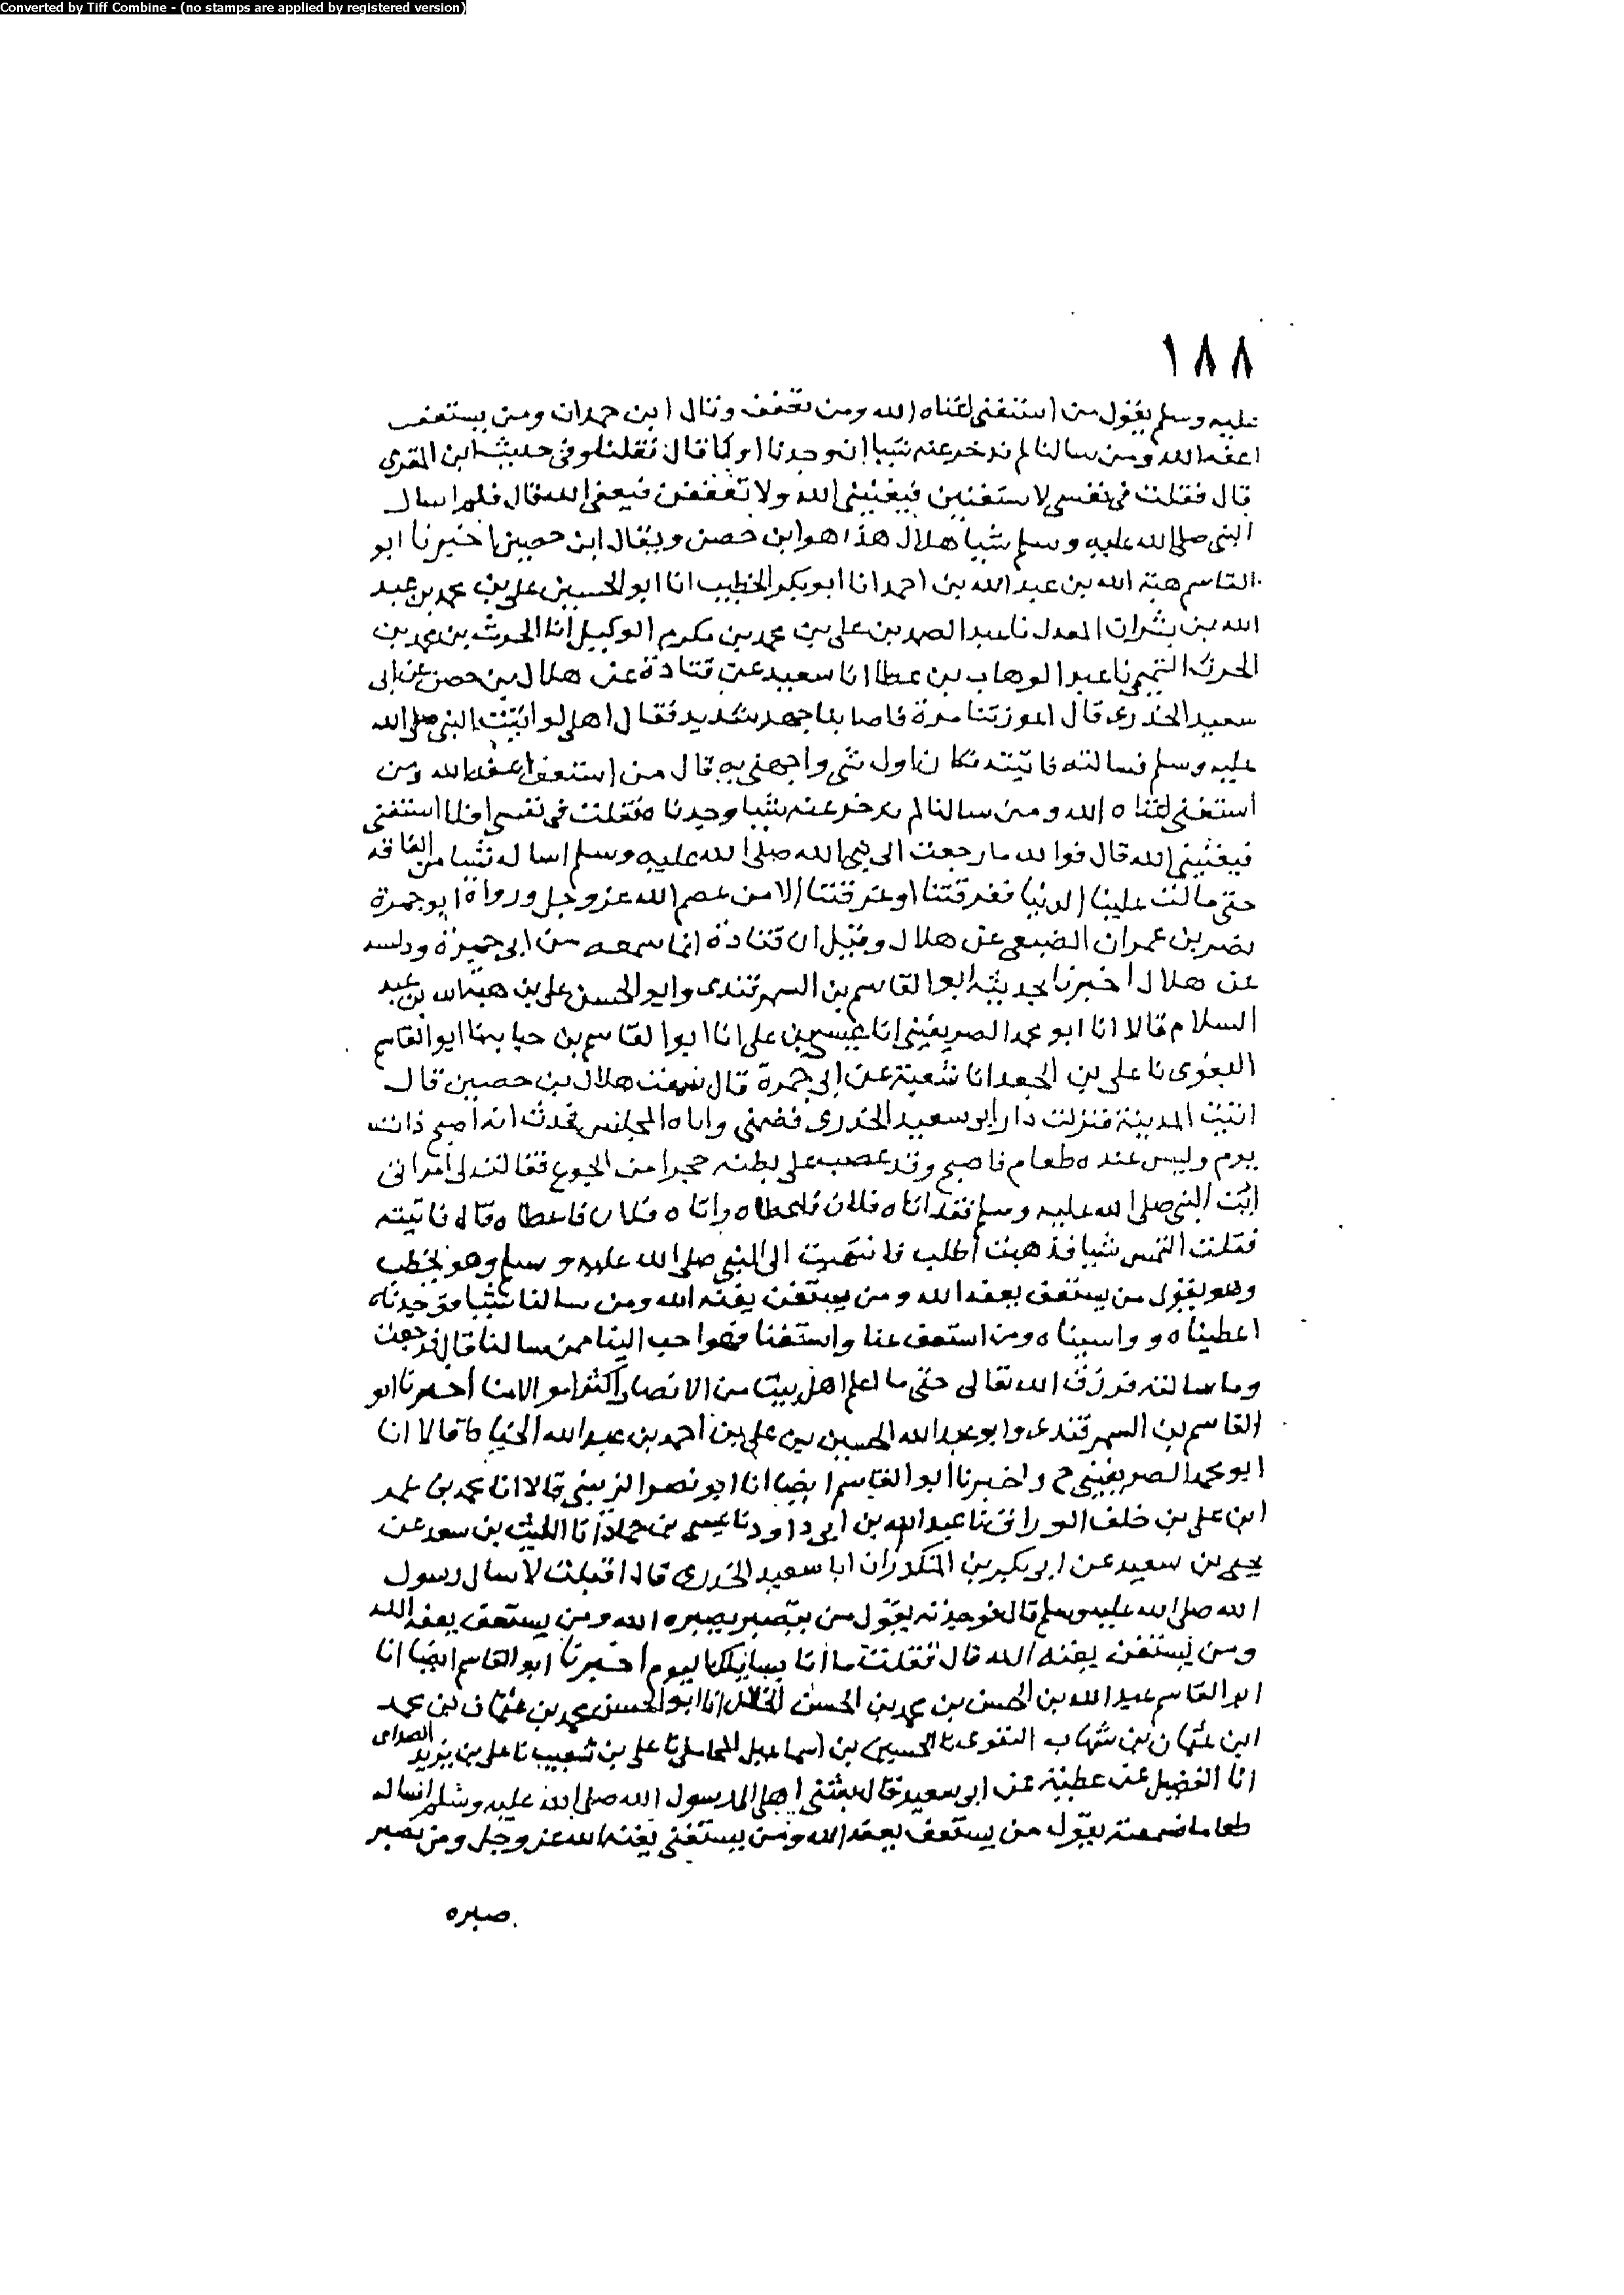 Converted by Tiff Combine - (no stamps are applied by registered version)
١٨٨
عليه وسلم يقول من استغنى اغناه الله ومن تعفف وقال ابن حمدان ومن يستعفف
اعفه الله ومن سالنا لم ندخر عنه شيا ان وجدنا او كما قال فقلنا وفى حديث ابن المقرى
قال فقلت فى نفسى لاستغنين فيغنينى الله ولا تعففن فيعفنى الله قال فلم اسال
النبى صلى الله عليه وسلم شيا هلال هذا هو ابن حصن ويقال ابن حصين اخبرنا ابو
القاسم هبة الله بن عبد الله بن احمد انا ابو بكر الخطيب انا ابو الحسين على بن محمد بن عبد
الله بن بشران المعدل نا عبد الصمد بن على بن محمد بن مكرم الوكيل انا الحرث بن محمد بن
الحرث التيمى نا عبد الوهاب بن عطا انا سعيد عن قتادة عن هلال بن حصن عن ابى
سعيد الخدرى قال اعوزتنا مرة فاصابنا جهد شديد فقال اهلى لو اتيت النبى صلى الله
عليه وسلم فسالته فاتيته فكان اول شى واجهنى به قال من استعف اعفه الله ومن
استغنى اغناه الله ومن سالنا لم ندخر عنه شيا وجدناه فقلت فى نفسى افلا استغنى
فيغنينى الله قال فوالله ما رجعت الى نبى الله صلى الله عليه وسلم اساله شيا من الفاقه
حتى مالت علينا الدنيا فغرقتنا او غرقتنا الا من عصم الله عز وجل ورواه ابو جمرة
نصر بن عمران الضبعى عن هلال وقيل ان قتادة انما سمعه من ابى جمرة ودلسه
عن هلال اخبرنا بحديثه ابو القاسم بن السمرقندى وابو الحسن على بن هبة الله بن عبد
السلام قالا انا ابو محمد الصريفينى انا عيسى بن على انا ابو القاسم بن حبابه نا ابو القاسم
البغوى نا على بن الجعد انا شعبة عن ابى جمرة قال سمعت هلال بن حصين قال
اتيت المدينة فنزلت دار ابو سعيد الخدرى فضمنى واياه المجلس فحدث انه اصبح ذات
يوم وليس عنده طعام فاصبح وقد عصب على بطنه حجرا من الجوع فقالت لى امراتى
ايت النبى صلى الله عليه وسلم فقد اتاه فلان فاعطاه واتاه فلان فاعطاه قال فاتيته
فقلت التمس شيا فذهبت اطلب فانتهيت الى النبى صلى الله عليه وسلم وهو يخطب
وهو يقول من يستعفف يعفه الله ومن يستغن يغنه الله ومن سالنا شيا فوجدناه
اعطيناه وواسيناه ومن استعف عنا واستغنا فهو احب الينا ممن سالنا قال فرجعت
وما سالته فرزق الله تعالى حتى ما اعلم اهل بيت من الانصار اكثر اموالا منا اخبرنا ابو
القاسم بن السمرقندى وابو عبد الله الحسين بن على بن احمد بن عبد الله الخياط قالا انا
ابو محمد الصريفينى ح واخبرنا ابو القاسم ايضا انا ابو نصر الزينبى قالا انا محمد بن عمر
ابن على بن خلف الوراق نا عبد الله بن ابى داود نا عيسى بن حماد انا الليث بن سعد عن
يحيى بن سعيد عن ابى بكر بن المنكدر ان ابا سعيد الخدرى قال اقبلت لاسال رسول
الله صلى الله عليه وسلم قال فوجدته يقول من يتصبر يصبره الله ومن يستعفف يعفه الله
ومن يستغن يغنه الله قال فقلت ما انا بسايلك اليوم اخبرنا ابو القاسم ايضا انا
ابو القاسم عبد الله بن الحسن بن محمد بن الحسن الخلال انا ابو الحسن محمد بن عثمان بن محمد
ابن عثمان بن شهاب النفرى نا الحسين بن اسماعيل المحاملى نا على بن شعيب نا على بن يزيد الصدائى
انا الفضيل عن عطية عن ابى سعيد قال بعثنى اهلى الى رسول الله صلى الله عليه وسلم اساله
طعاما فسمعته يقول من يستعفف يعفه الله ومن يستغنى يغنه الله عز وجل ومن تصبر
صبره